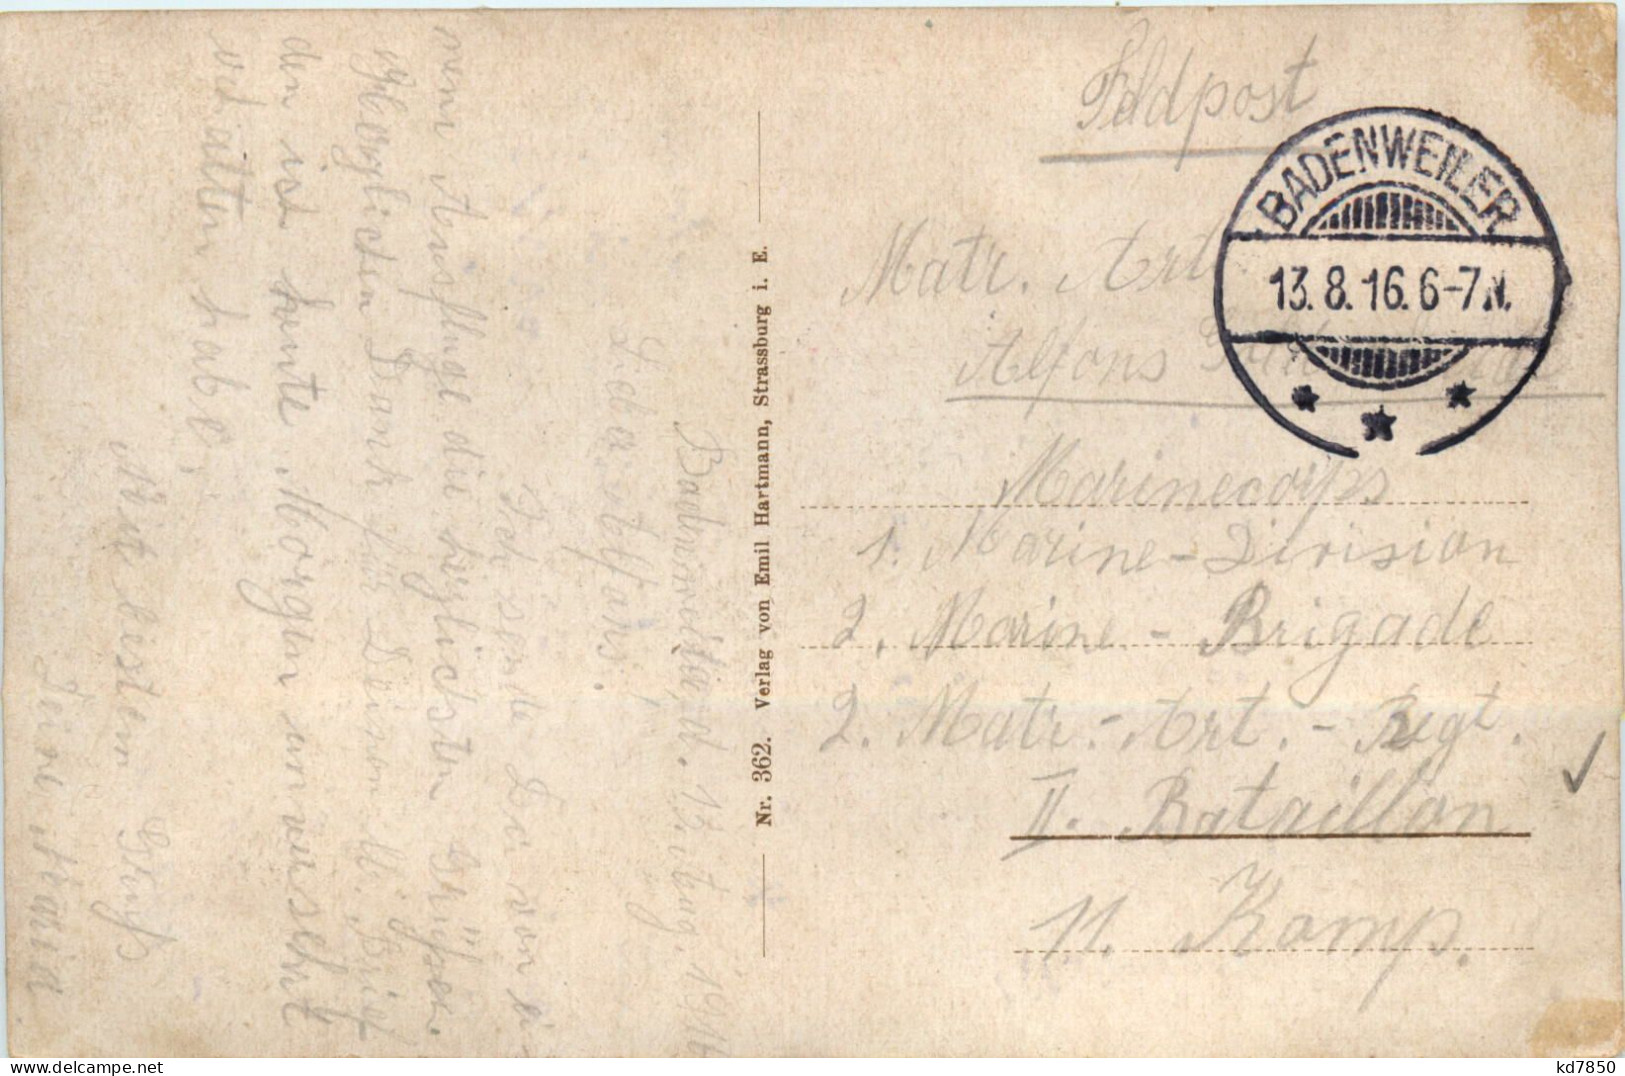 Feldpost
BADENWEILER
13. 8. 16. 6-7 N.
Matr. Art
Alfons
Marinecorps
1. Marine-Division
2. Marine-Brigade
2. Matr.-Art.-Regt.
II. Bataillon
11. Komp.
Nr. 362. Verlag von Emil Hartmann, Strassburg i. E.
Badenweiler, d. 13. Aug. 1916
Lieber Alfons.
Ich sende Dir von ei-
nem Ausfluge die herzlichsten Grüße.
Herzlichen Dank für Deinen l. Brief
den ich heute Morgen unversehrt
erhalten habe.
Mit besten Gruß
Deine Maria
delcampe.net
kd7850